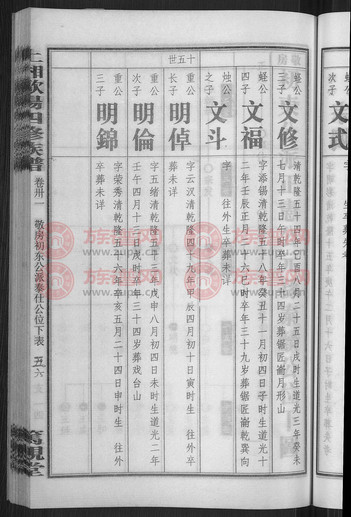 文式
次子
蛏公
三子
文修
清乾隆五十四年己酉八月二十五日戌时生道光三年癸未
七月十三日午时卒年三十四岁葬锯匠崙月形山
蛏公
四子
文福
字添锡清乾隆五十八年癸丑十一月初四日子时生道光十
二年壬辰正月二十六巳时卒年三十九岁葬锯匠崙乾巽向
烛公
之子
文斗
字 往外生卒葬未详
十五世
重公
长子
明倬
字云汉清乾隆四十九年甲辰四月初十日寅时生 往外卒
葬未详
重公
次子
明倫
字五绪清乾隆五十三年戊申八月初四日未时生道光二年
壬午四月十二日戌时卒年三十四岁葬戏台山
重公
三子
明錦
字荣秀清乾隆五十六年辛亥五月二十四日申时生 往外
卒葬未详
上湘歐陽四修族譜
卷卅一
敬房初东公派奉仕公位下表
五六
篤親堂